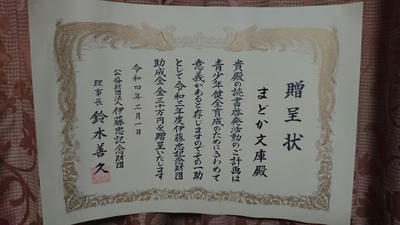 贈呈状
まどか文庫殿
貴殿の読書啓発活動のご計画は
青少年健全育成のためにきわめて
意義があると存じますのでその一助
として令和三年度伊藤忠記念財団
助成金金三十万円を贈呈いたします
令和四年三月一日
公益財団法人伊藤忠記念財団
理事長 鈴木善久